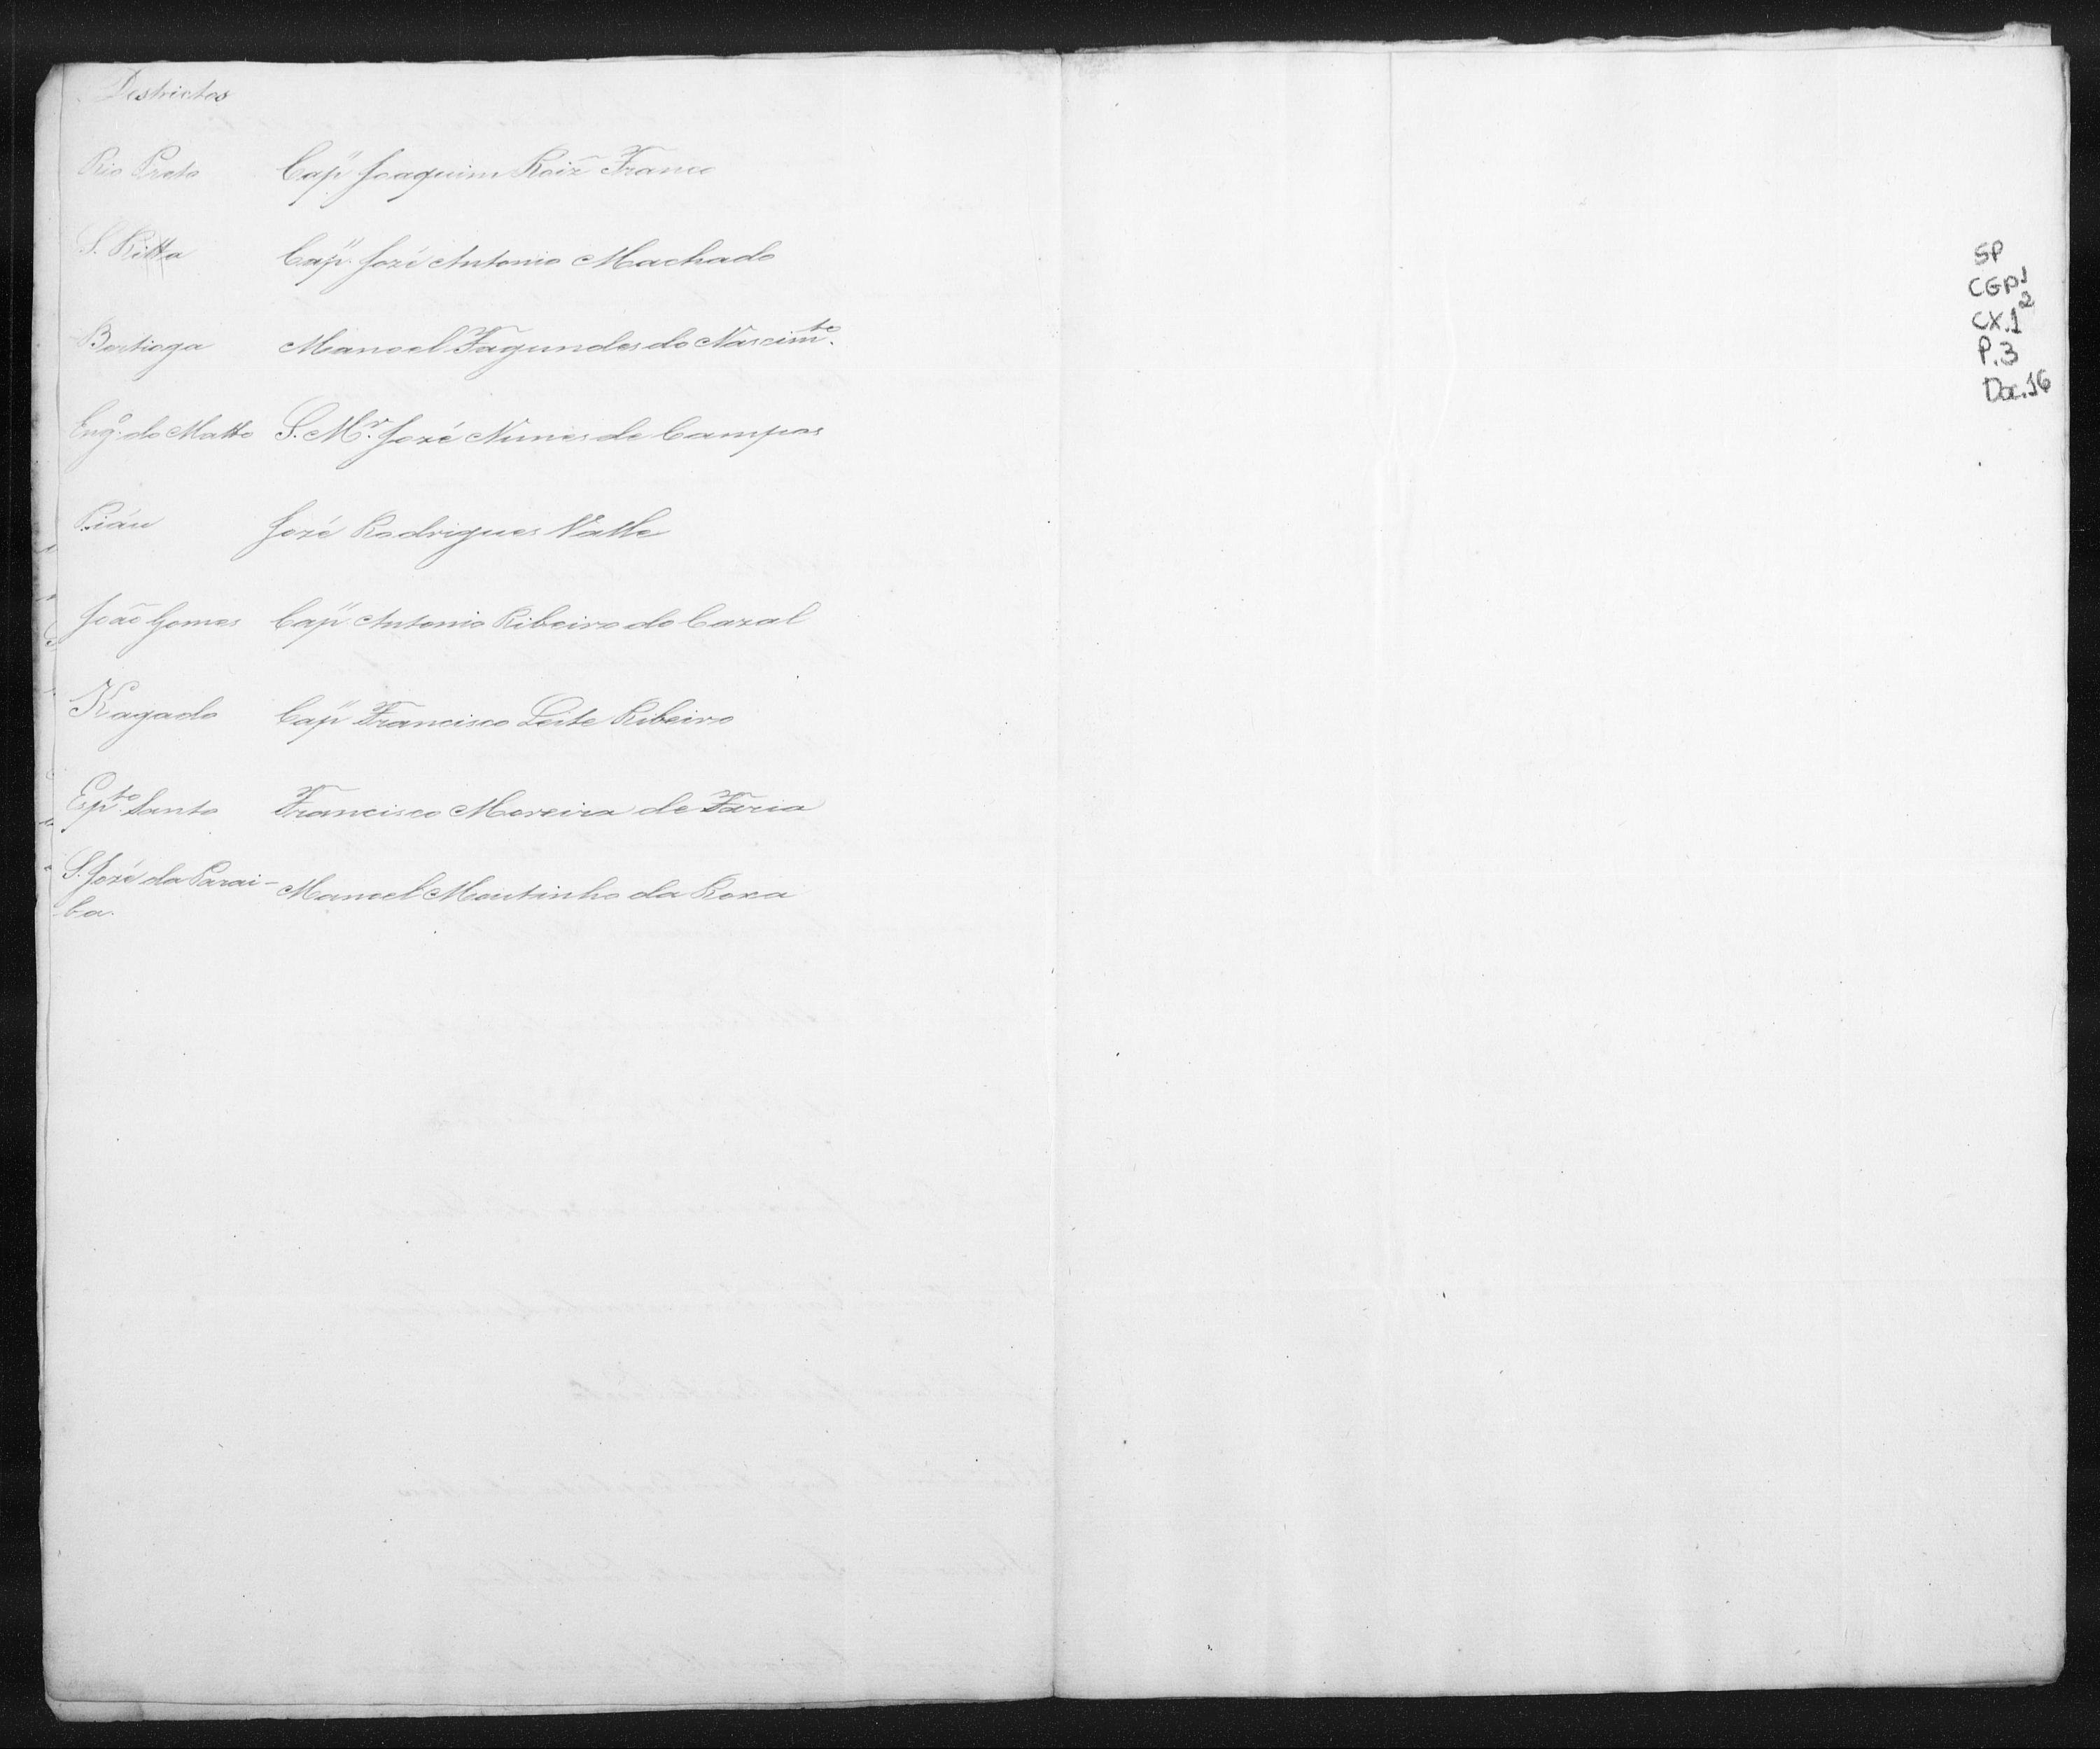 Destrictos
Rio Preto Cap.m Joaquim Roiz Franco
S. Ritta Cap.m José Antonio Machado
Bertioga Manoel Fagundes do Nascim.to
Eng.o do Matto S. M.r José Nunes de Campos
Piáu José Rodrigues Valle
João Gomes Cap.m Antonio Ribeiro do Cazal
Kagado Cap.m Francisco Leite Ribeiro
Esp.to Santo Francisco Moreira de Faria
S. José da Parai- Manoel Moutinho da Roxa
ba.
SP
CGP1
CX.1 2
P.3
Doc.16